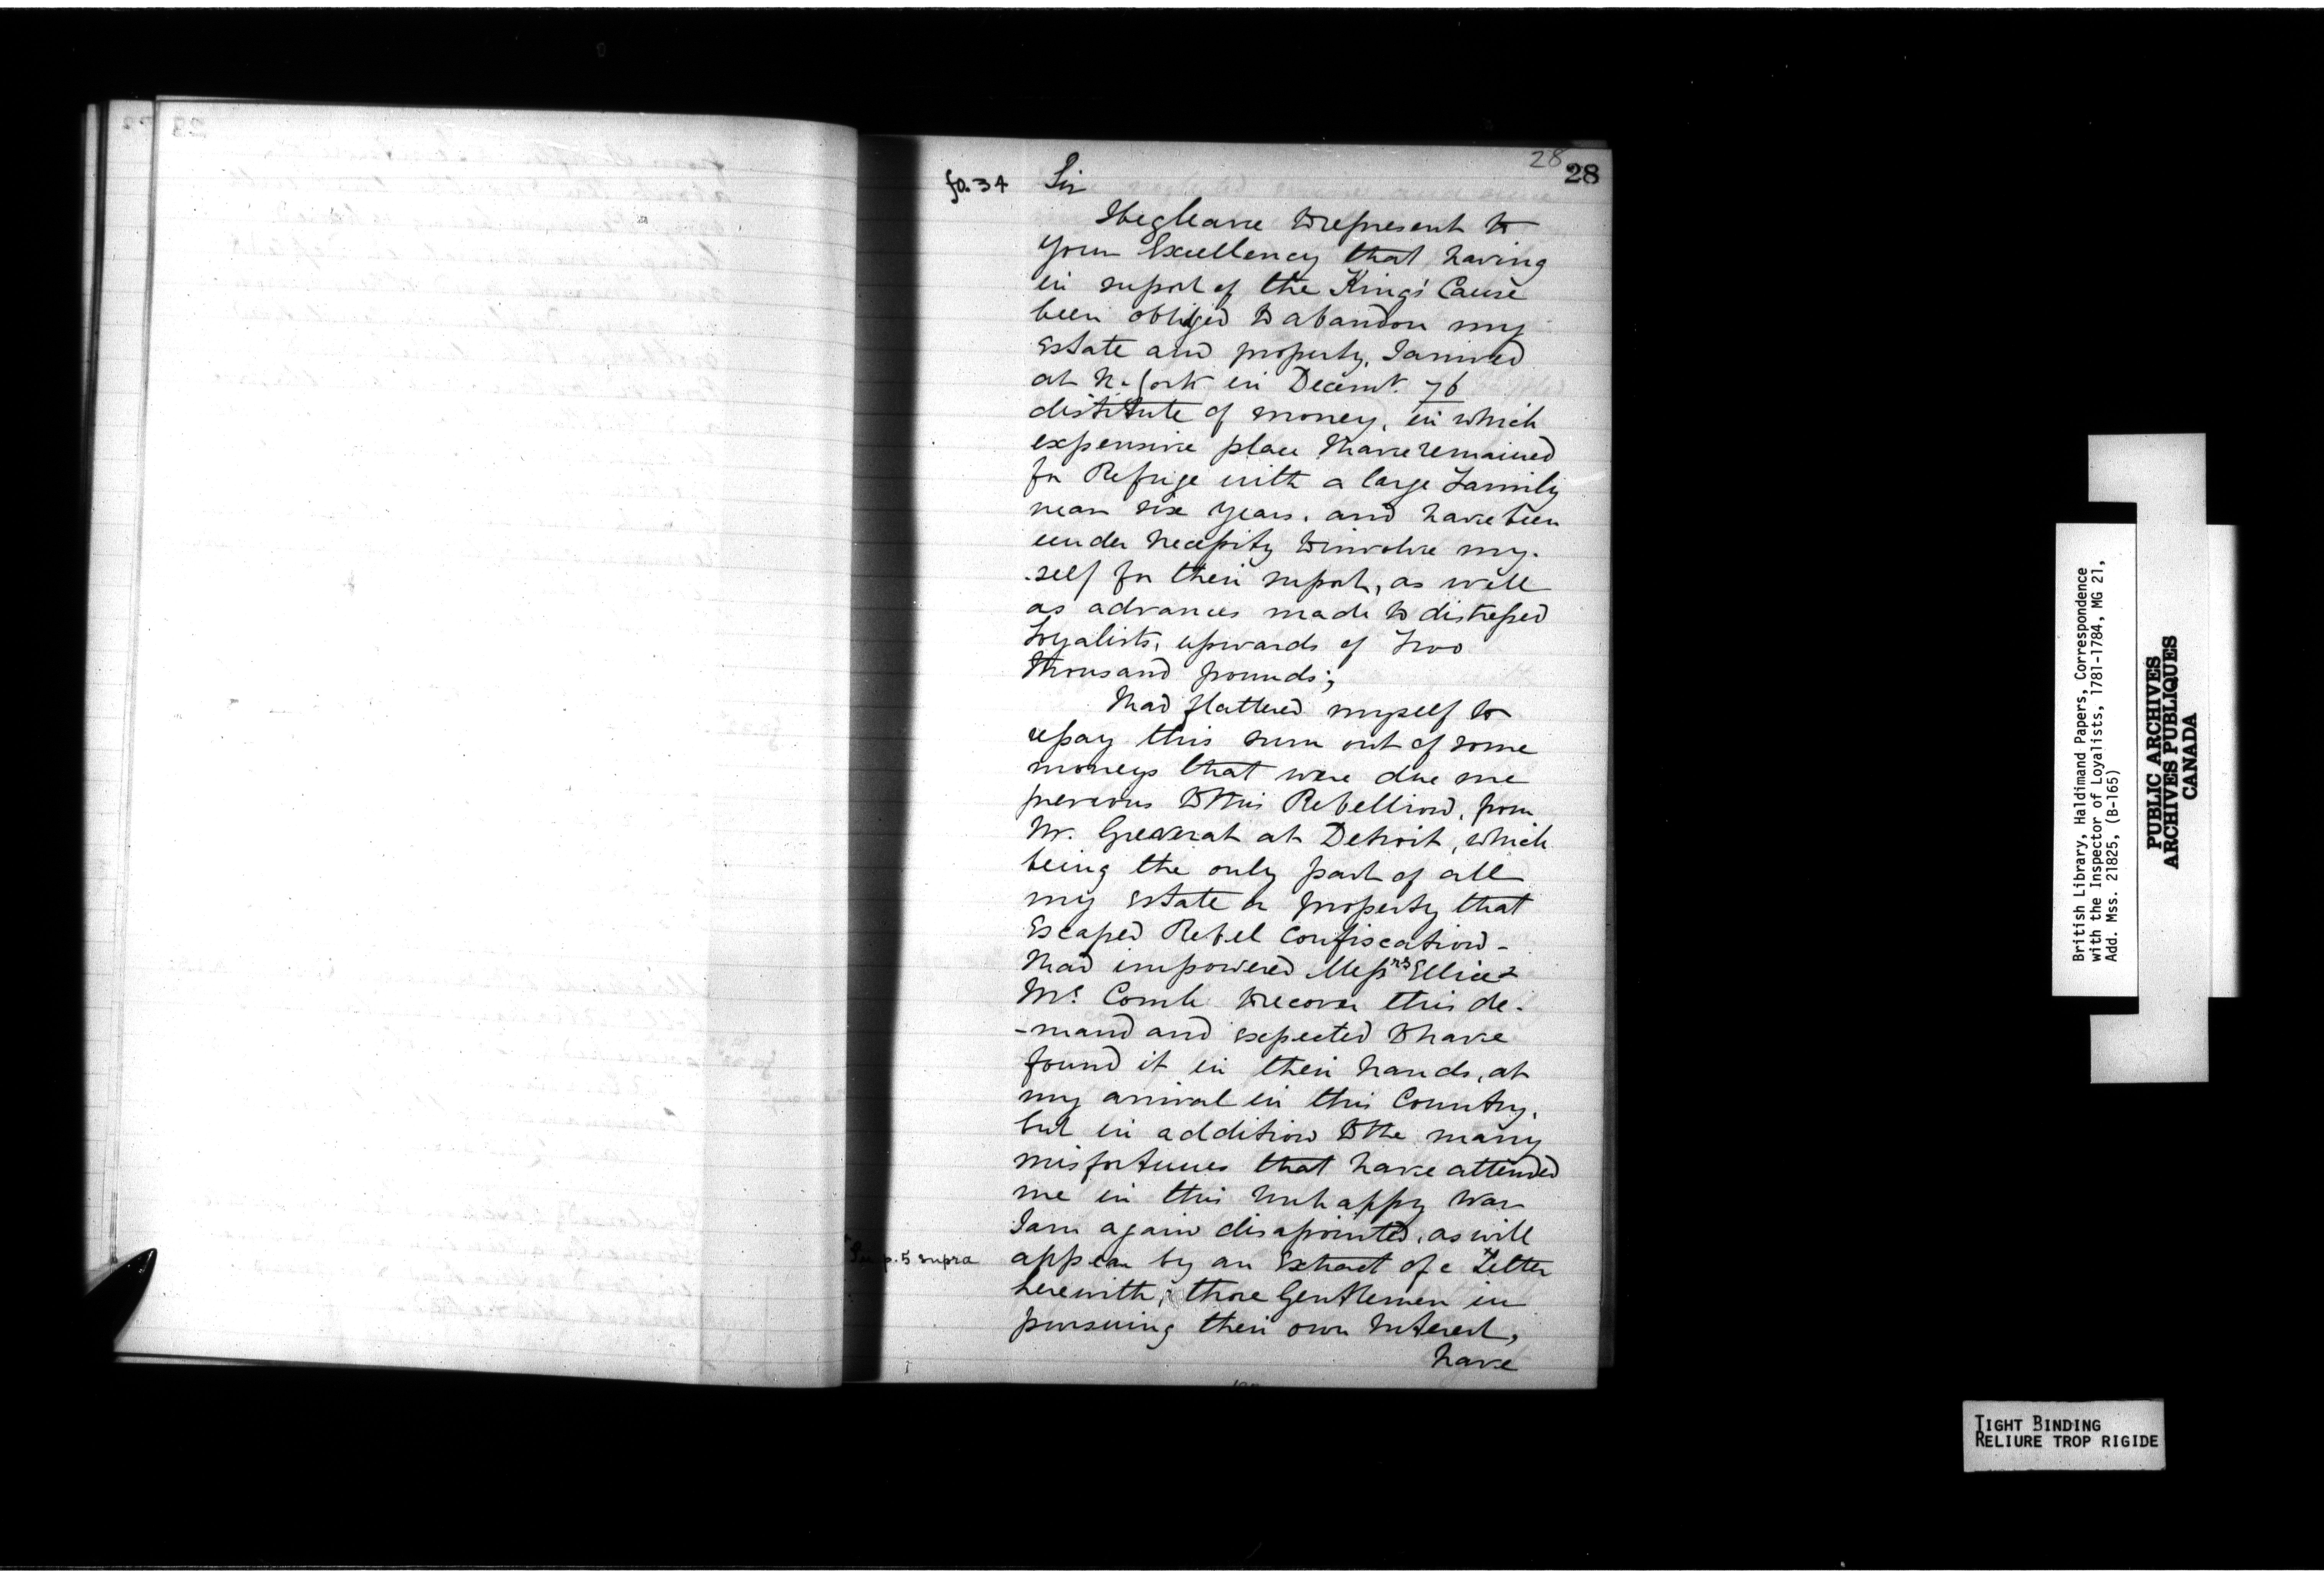 28
28
fo. 34
Sir
I beg leave to represent to
your Excellency that having
in suport of the Kings' Cause
been obliged to abandon my
Estate and property, I arrived
at N. York in Decemr. 76
distitute of money, in which
expensive place I have remained
for Refuge with a large Family
near six years, and have been
under necessity to involve my-
-self for their suport, as well
as advances made to distressed
Loyalists, upwards of Two
Thousand pounds;
I had flattered myself to
repay this sum out of some
moneys that were due me
previous to this Rebellion, from
Mr. Greverat at Detroit, which
being the only part of all
my Estate or property that
Escaped Rebel Confiscation -
I had impowered Messrs Ellice &
Mc Comb to recover this de-
-mand and expected to have
found it in their hands, at
my arrival in this Country,
but in addition to the many
misfortunes that have attended
me in this unhappy War
I am again disapointed, as will
* See p. 5 supra
appear by an Extract of a * Letter
herewith; those Gentlemen in
pursuing their own Interest,
have
British Library, Haldimand Papers, Correspondence
with the Inspector of Loyalists, 1781-1784, MG 21,
Add. Mss. 21825, (B-165)
PUBLIC ARCHIVES
ARCHIVES PUBLIQUES
CANADA
TIGHT BINDING
RELIURE TROP RIGIDE